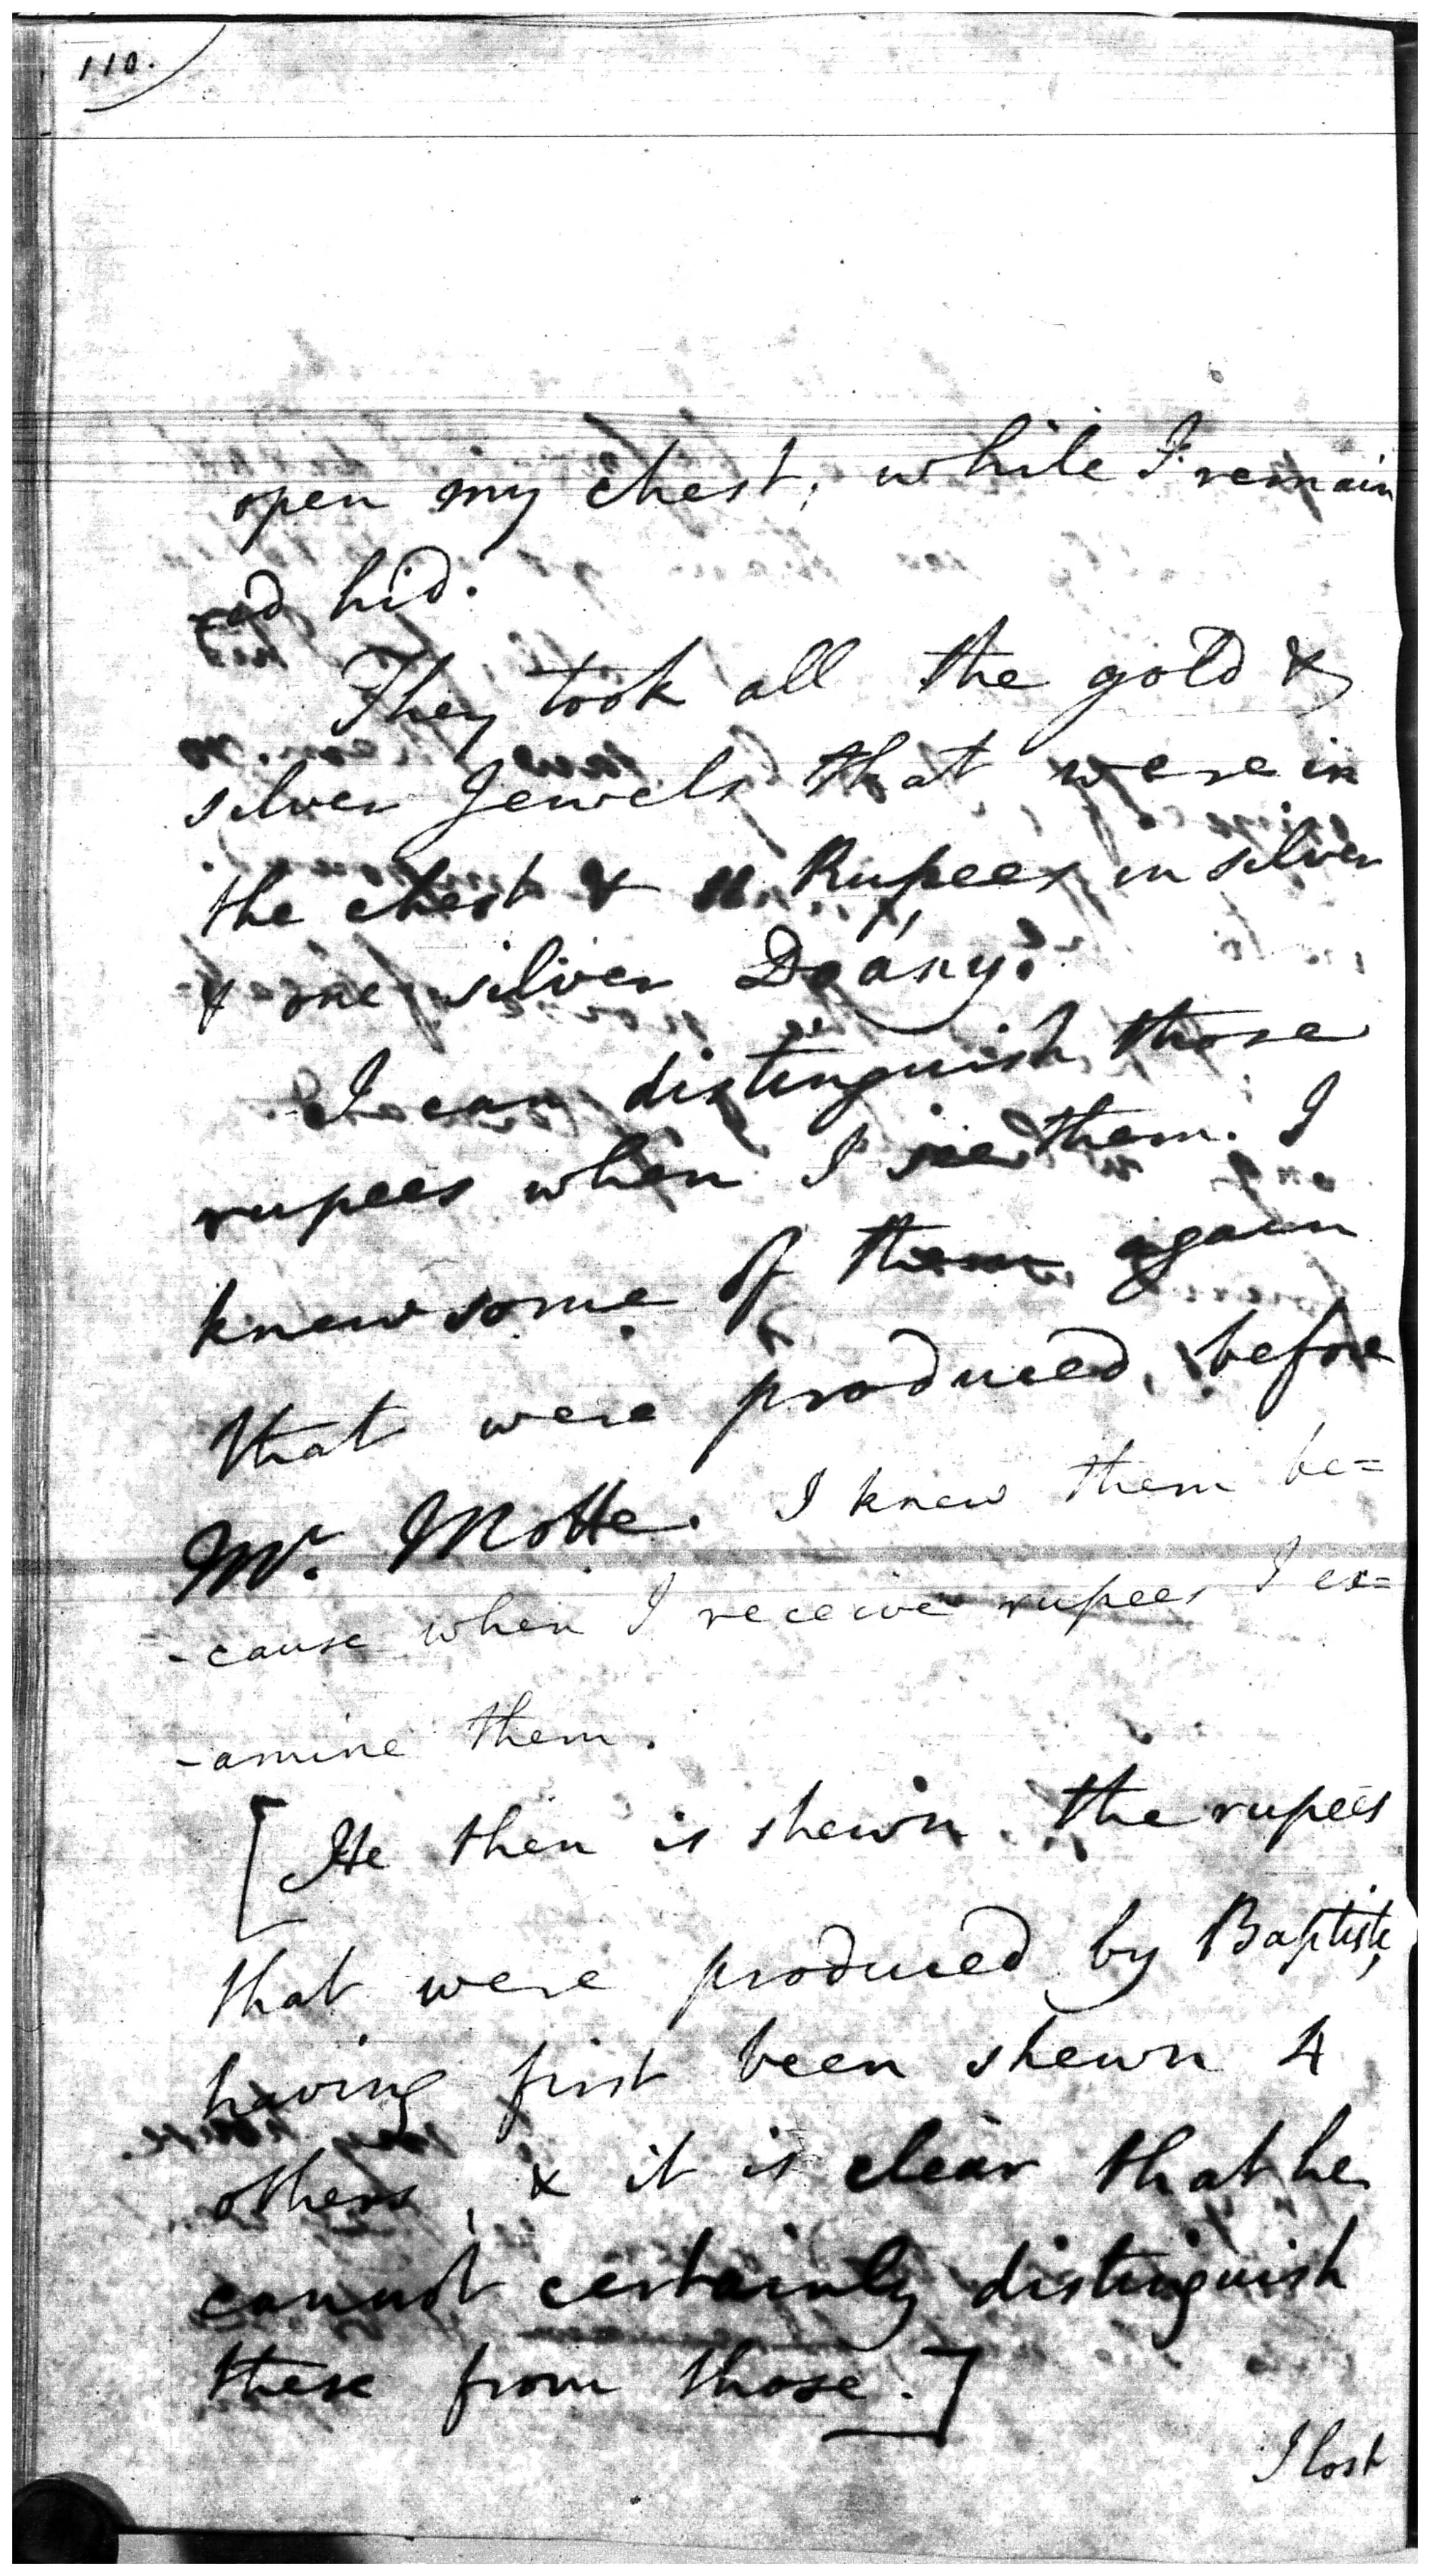 110.
open my chest, while I remain
-ed hid.
They took all the gold &
silver Jewels that were in
the chest & 11 Rupees in silver
& one silver Doany.
I can distinguish those
rupees when I see them. I
knew some of them again
that were produced, before
Mr. Motte. I knew them be=
-cause when I receive rupees I ex=
-amine them.
[He then is shewn the rupees
that were produced by Baptiste,
having first been shewn 4
others, & it is clear that he
cannot certainly distinguish
these from those.]
I lost